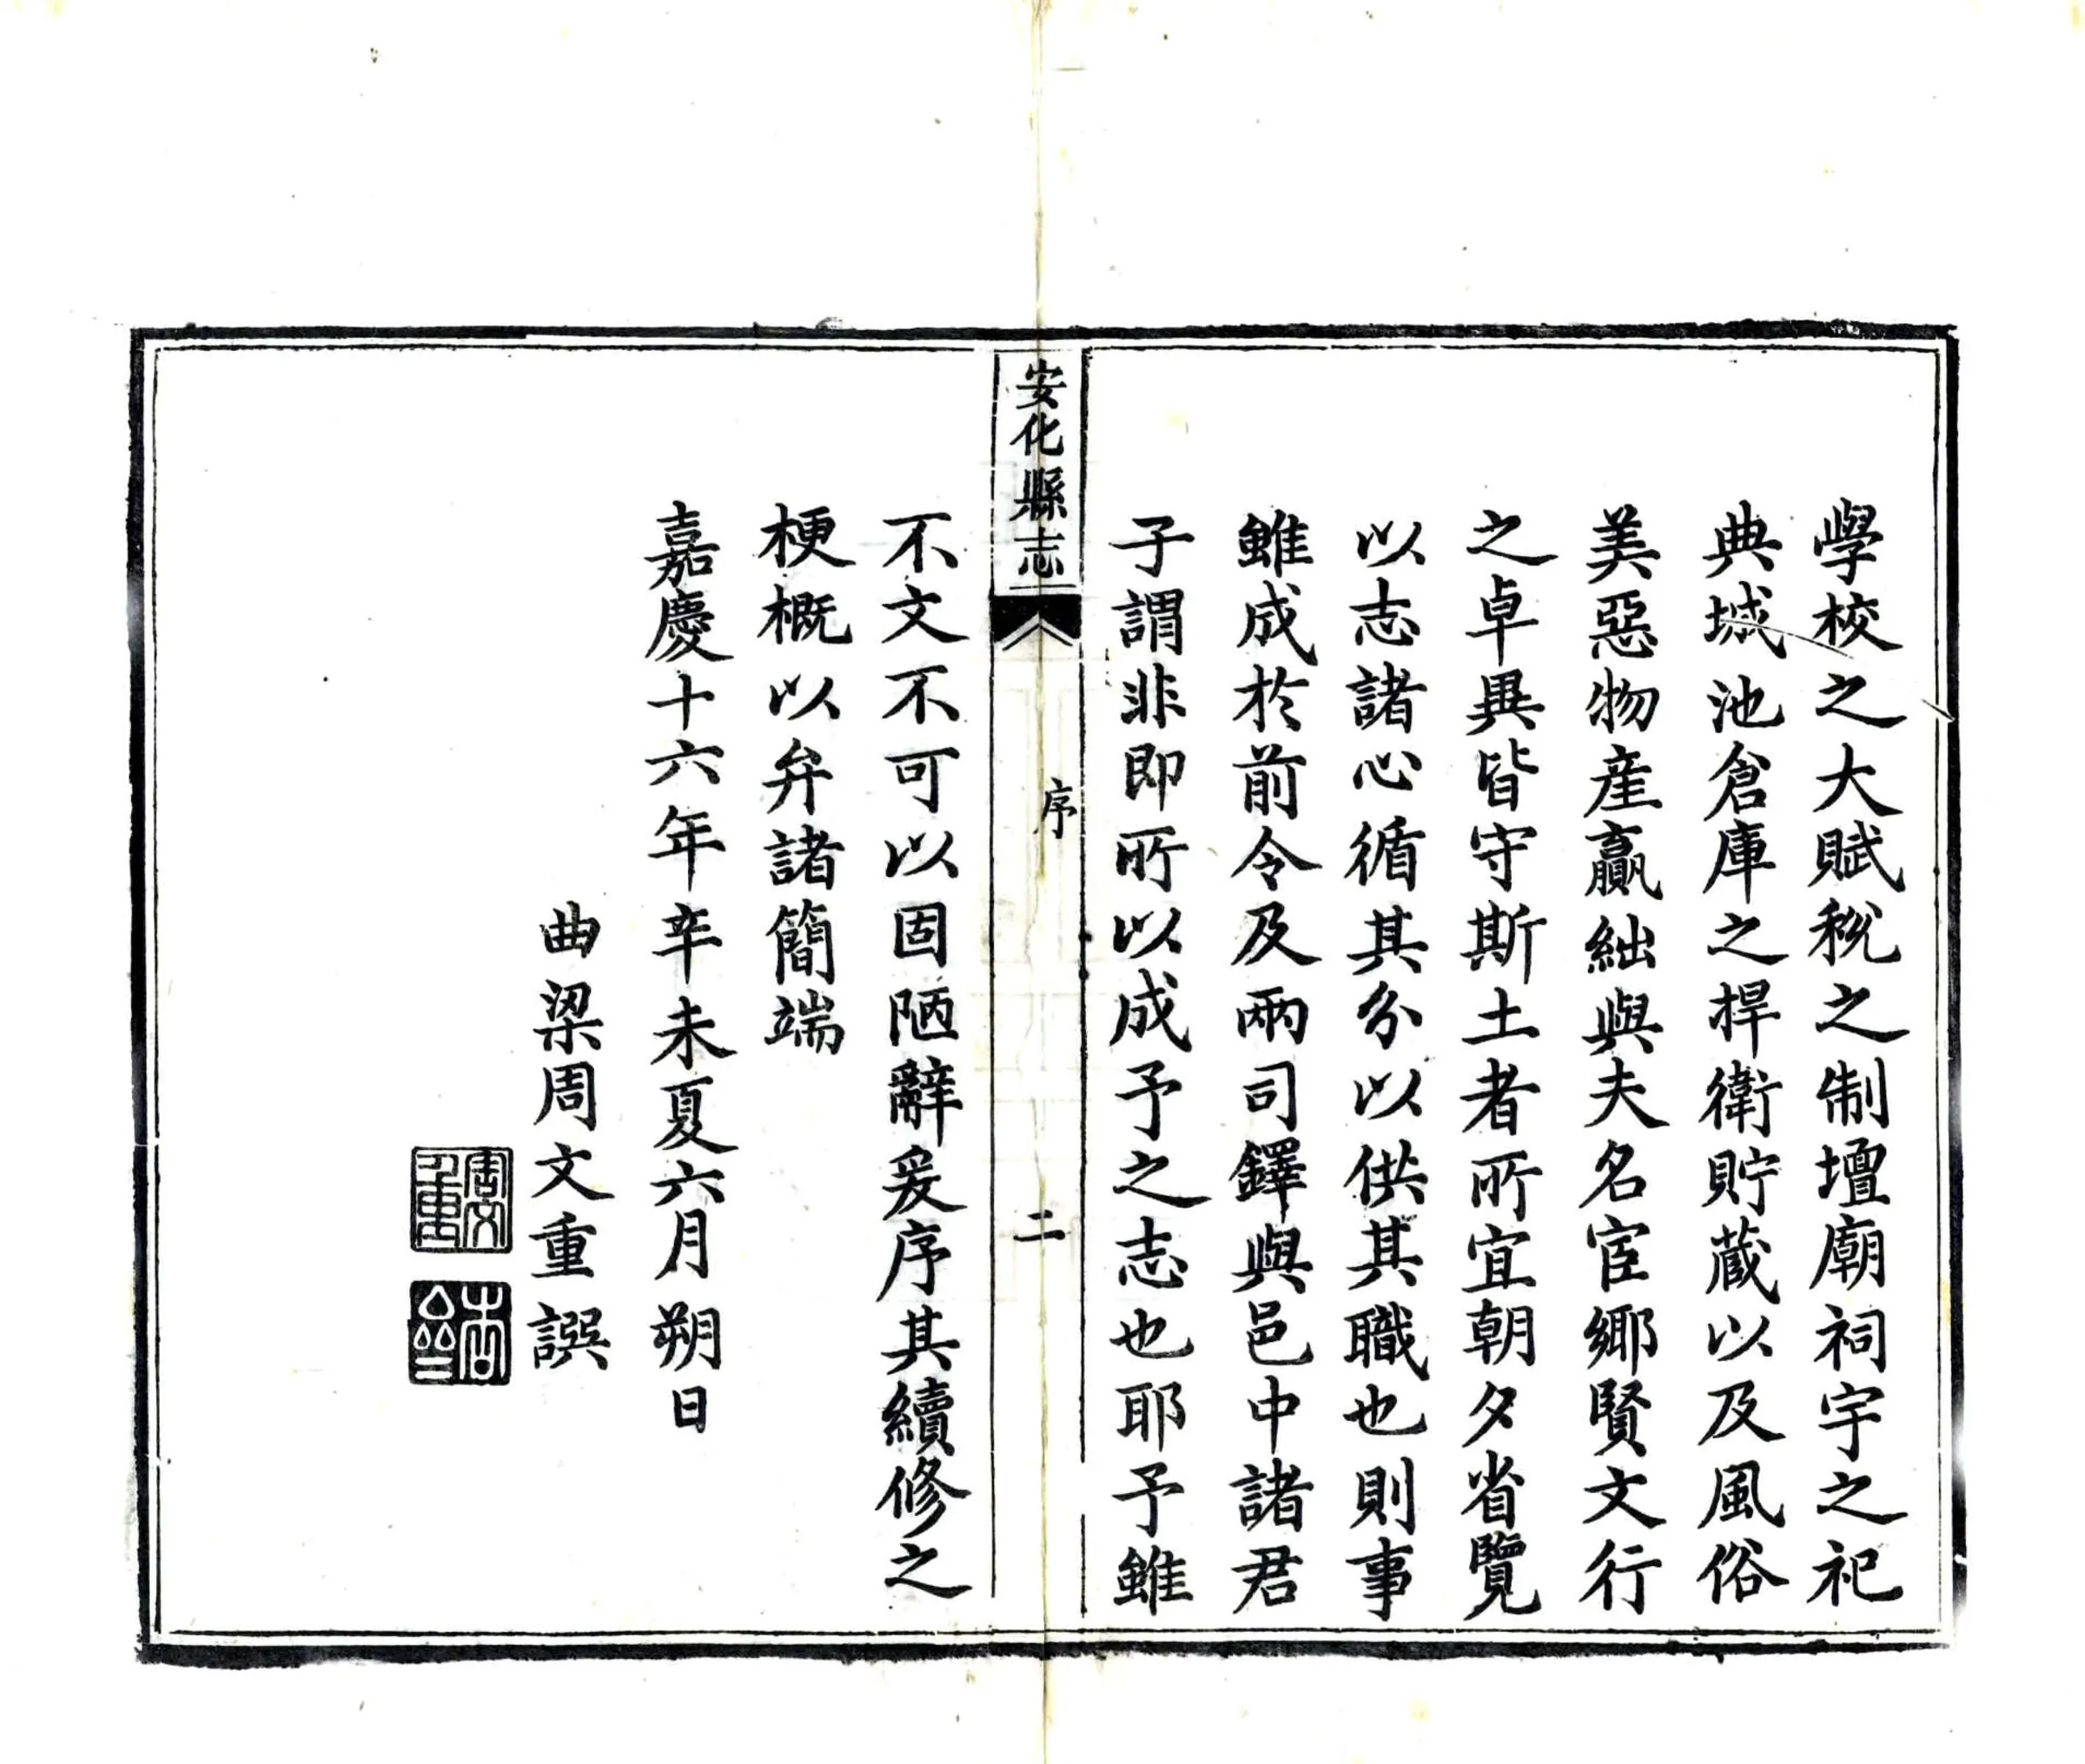 學校之大賦稅之制壇廟祠宇之祀
典城池倉庫之捍衛貯蔵以及風俗
美惡物產贏絀與夫名宦鄉賢文行
之卓異皆守斯土者所宜朝夕省覽
以志諸心循其分以供其職也則事
雖成於前令及兩司鐸與邑中諸君
子謂非即所以成予之志也耶予雖
安化縣志
序
二
不文不可以固陋辭爰序其續修之
梗概以弁諸簡端
嘉慶十六年辛未夏六月朔日
曲梁周文重譔
周文重